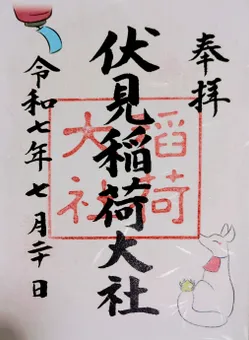 奉拝
伏見稲荷大社
稲荷
大社
令和七年七月二十日